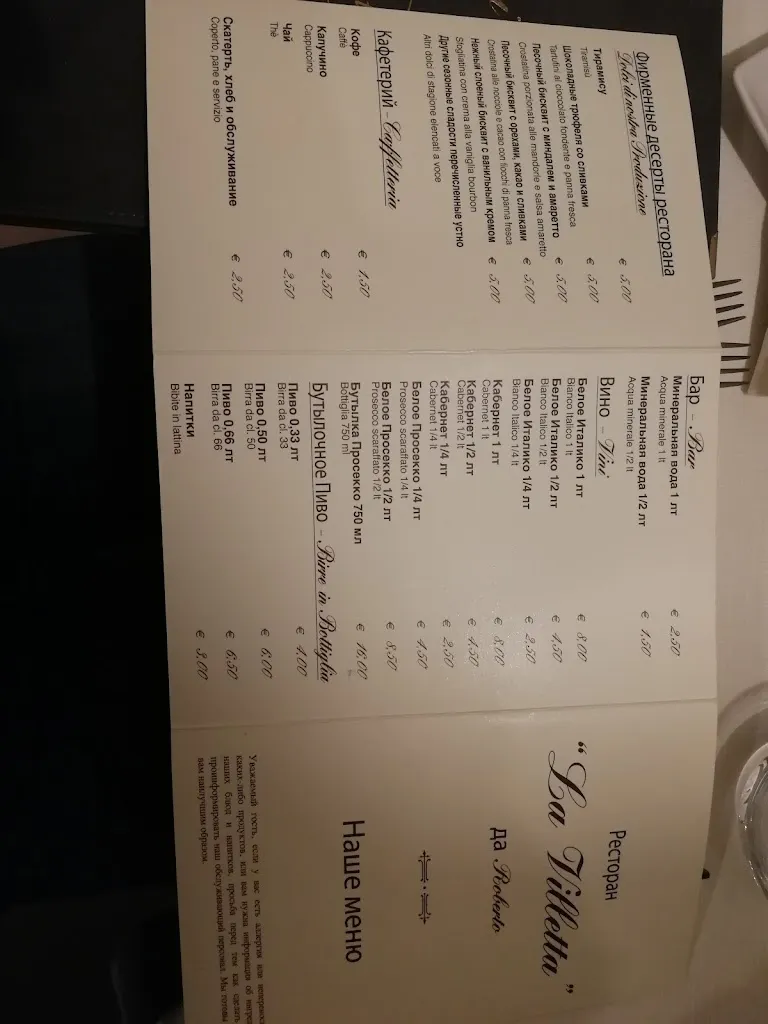 Фирменные десерты ресторана
Dolci di nostra Produzione
Тирамису € 5,00
Tiramisù
Шоколадные трюфеля со сливками € 5,00
Tartufini al cioccolato fondente e panna fresca
Песочный бисквит с миндалем и амаретто € 5,00
Crostatina porzionata alle mandorle e salsa amaretto
Песочный бисквит с орехами, какао и сливками € 5,00
Crostatina alle nocciole e cacao con fiocchi di panna fresca
Нежный слоеный бисквит с ванильным кремом € 5,00
Stogliatina con crema alla vaniglia bourbon
Другие сезонные сладости перечисленные устно
Altri dolci di stagione elencati a voce
Кафетерий - Caffetteria
Кофе € 1,50
Caffè
Капучино € 2,50
Cappuccino
Чай € 2,50
Thè
Скатерть, хлеб и обслуживание € 2,50
Coperto, pane e servizio
Бар - Bar
Минеральная вода 1 лт € 2,50
Acqua minerale 1 lt
Минеральная вода 1/2 лт € 1,50
Acqua minerale 1/2 lt
Вино - Vini
Белое Италико 1 лт € 8,00
Bianco Italico 1 lt
Белое Италико 1/2 лт € 4,50
Bianco Italico 1/2 lt
Белое Италико 1/4 лт € 2,50
Bianco Italico 1/4 lt
Кабернет 1 лт € 8,00
Cabernet 1 lt
Кабернет 1/2 лт € 4,50
Cabernet 1/2 lt
Кабернет 1/4 лт € 2,50
Cabernet 1/4 lt
Белое Просекко 1/4 лт € 4,50
Prosecco scaraffato 1/4 lt
Белое Просекко 1/2 лт € 8,50
Prosecco scaraffato 1/2 lt
Бутылка Просекко 750 мл € 16,00
Bottiglia 750 ml
Бутылочное Пиво - Birre in Bottiglia
Пиво 0,33 лт € 4,00
Birra da cl. 33
Пиво 0,50 лт € 6,00
Birra da cl. 50
Пиво 0,66 лт € 6,50
Birra da cl. 66
Напитки € 3,00
Bibite in lattina
Ресторан
“La Villetta”
да Roberto
Наше меню
Уважаемый гость, если у вас есть аллергия или
каких-либо продуктов, или вам нужна информация об
наших блюд и напитков, просьба перед тем как сделать
проинформировать наш обслуживающей персонал. Мы готовы
вам наилучшим образом.